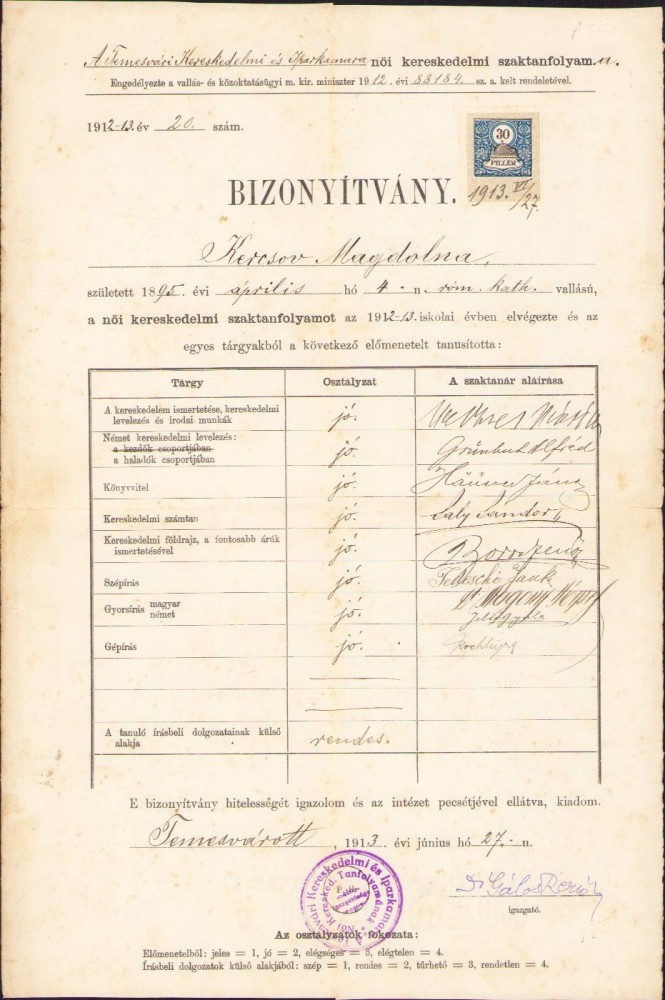 A Temesvári Kereskedelmi és Iparkamara női kereskedelmi szaktanfolyam.a.
Engedélyezte a vallás- és közoktatásügyi m. kir. miniszter 1912. évi 88184. sz. a. kelt rendeletével.
1912-13. év 20. szám.
30
FILLÉR
1913. VI/27.
BIZONYÍTVÁNY.
Kercsov Magdolna,
született 1895. évi április hó 4.-n. róm. kath. vallású,
a női kereskedelmi szaktanfolyamot az 1912-13. iskolai évben elvégezte és az
egyes tárgyakból a következő előmenetelt tanusította:
Tárgy Osztályzat A szaktanár aláírása
A kereskedelem ismertetése, kereskedelmi
levelezés és irodai munkák jó.
Német kereskedelmi levelezés:
a kezdők csoportjában
a haladók csoportjában jó. Grünhut Alfréd
Könyvvitel jó.
Kereskedelmi számtan jó. Saly Sándor
Kereskedelmi földrajz, a fontosabb árúk
ismertetésével jó.
Szépírás jó.
Gyorsírás magyar
német jó.
Gépírás jó.
A tanuló írásbeli dolgozatainak külső
alakja rendes.
E bizonyítvány hitelességét igazolom és az intézet pecsétjével ellátva, kiadom.
Temesvárott, 1913 évi június hó 27.-n.
Temesvári Kereskedelmi és Iparkamara
Női Keresked. Tanfolyamának
Dr Gálos Rezső
igazgató.
Az osztályzatok fokozata:
Előmenetelből: jeles = 1, jó = 2, elégséges = 3, elégtelen = 4.
Írásbeli dolgozatok külső alakjából: szép = 1, rendes = 2, türhető = 3, rendetlen = 4.